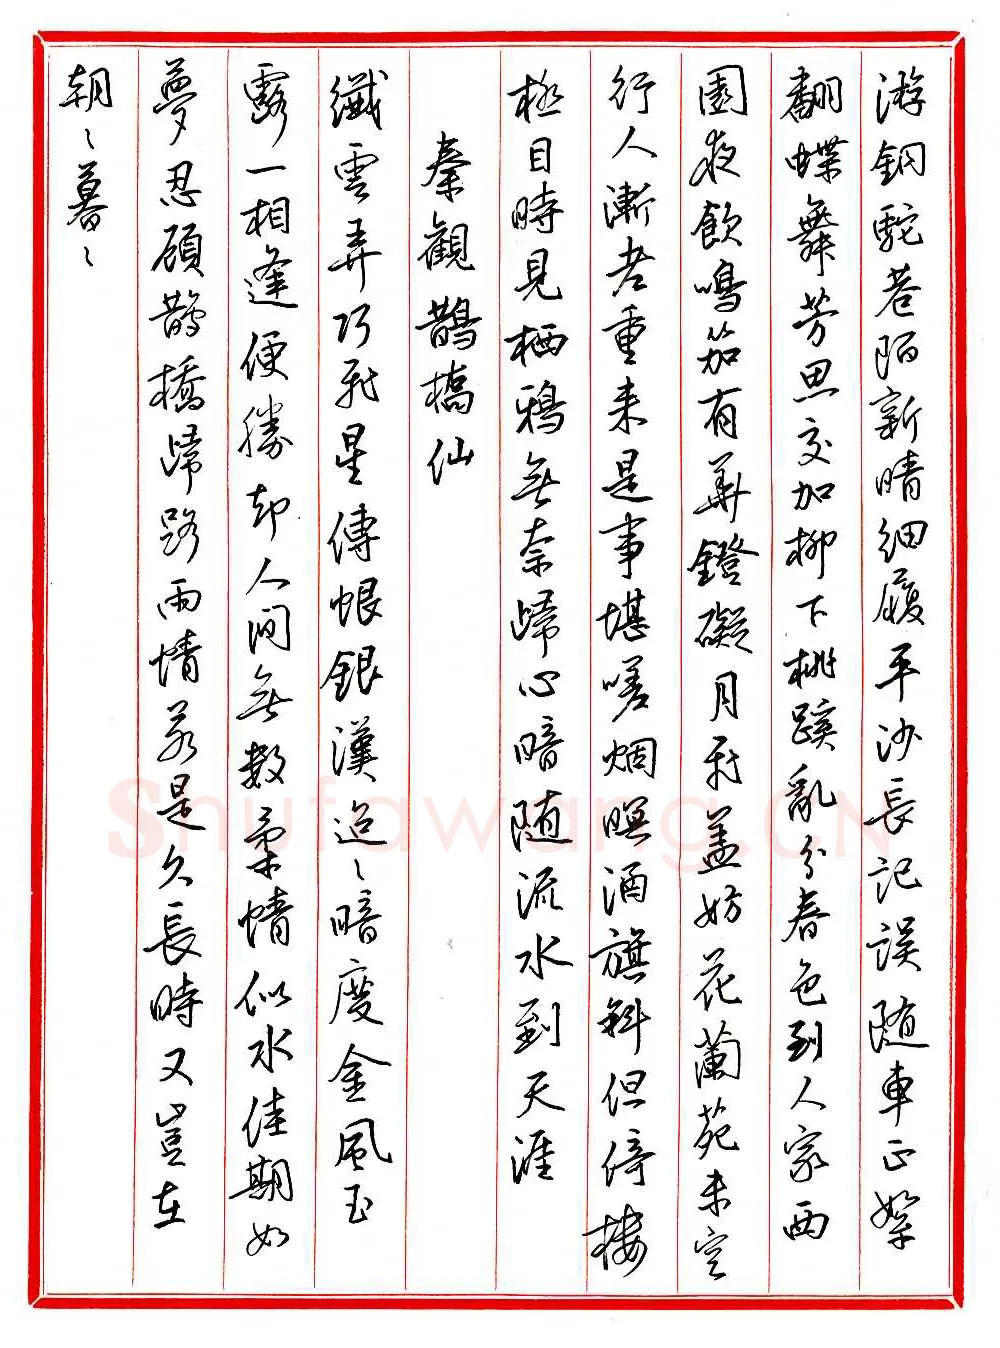 游銅駝巷陌新晴細履平沙長記誤随車正絮
翻蝶舞芳思交加柳下桃蹊亂分春色到人家西
園夜飲鳴笳有華鐙礙月飛蓋妨花蘭苑未空
行人漸老重来是事堪嗟烟暝酒旗斜但倚樓
極目時見栖鴉無奈歸心暗随流水到天涯
秦觀鵲橋仙
纖雲弄巧飛星傳恨銀漢迢〻暗度金風玉
露一相逢便勝却人間無數柔情似水佳期如
夢忍顧鵲橋歸路兩情若是久長時又豈在
朝〻暮〻
Shufawang.CN